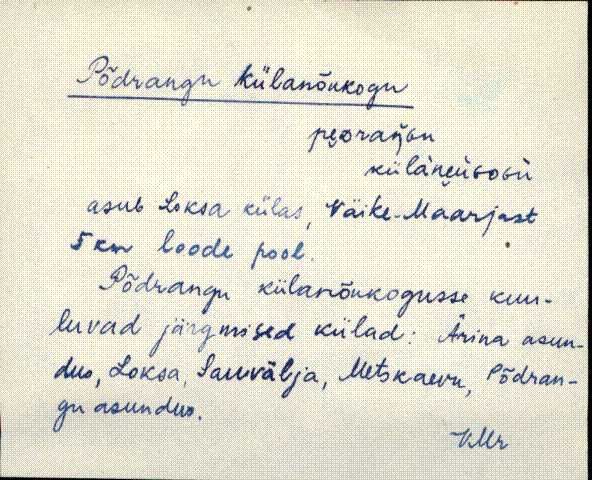 Põdrangu külanõukogu
asub Loksa külas, Väike-Maarjast
5 km loode pool.
Põdrangu külanõukogusse kuu-
luvad järgmised külad: Ärina asun-
dus, Loksa, Sauvälja, Metskaevu, Põdran-
gu asundus.
VMr